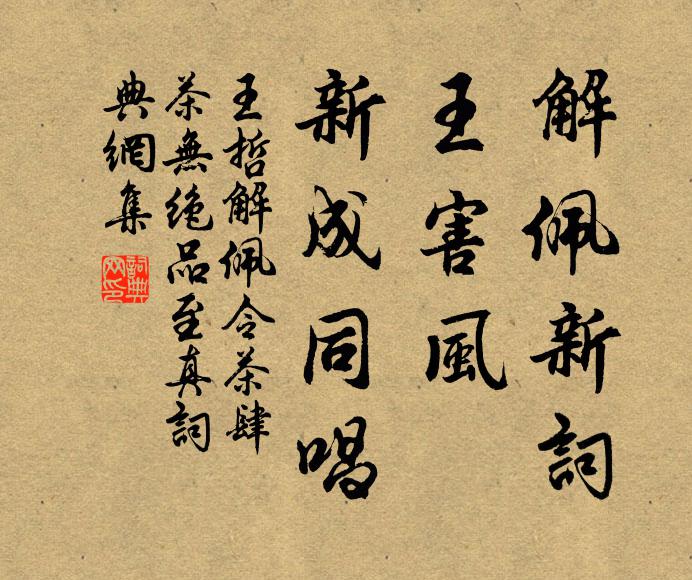 解佩新詞
王害風
新成同唱
王哲解佩令茶肆
茶無绝品至真詞
典網集
詞典网印